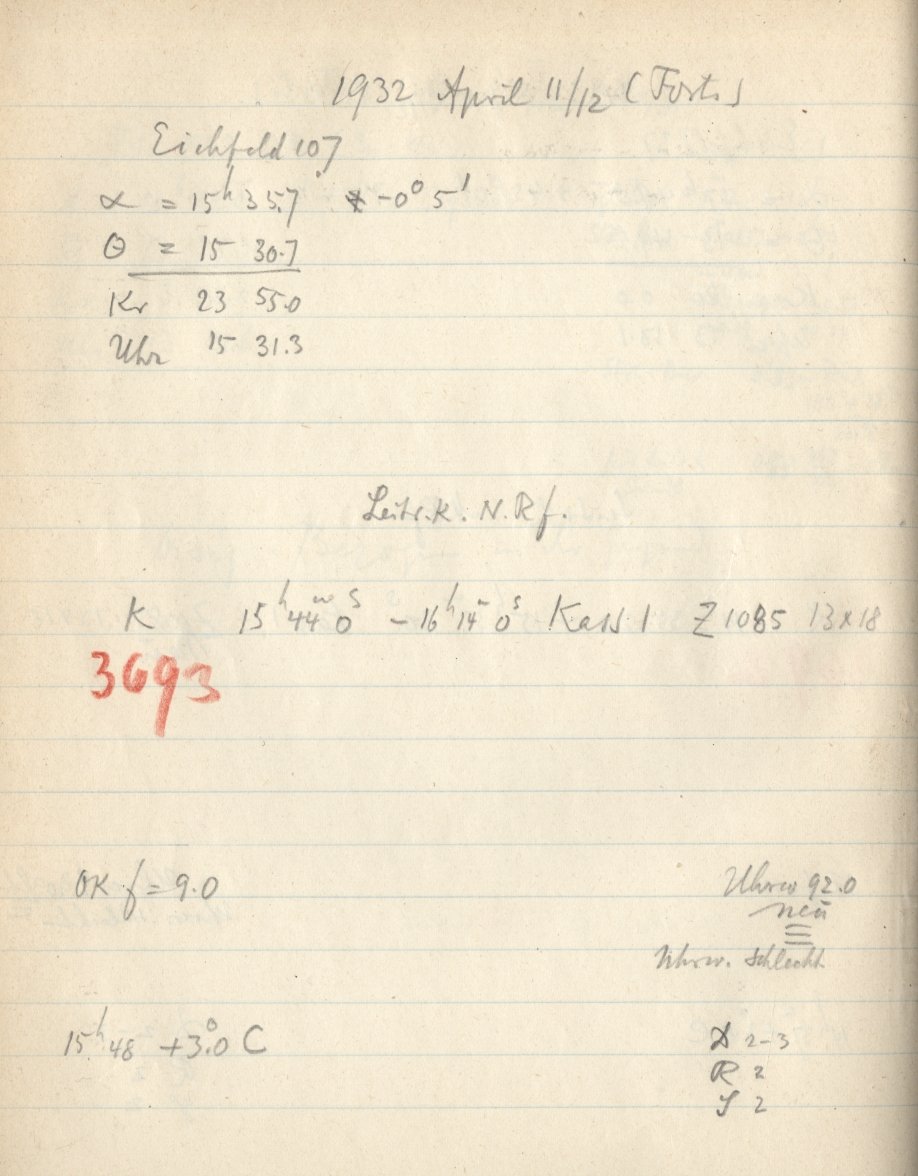 1932 April 11/12 (Forts)
Eichfeld 107
α = 15h 35.7 -0° 5'
Θ = 15 30.7
Kr 23 55.0
Uhr 15 31.3
Leitr.k. N.Rf.
K 15h 44m 0s - 16h 14m 0s Kass 1 Z 1085 13x18
3693
OK f = 9.0
Uhrw 92.0
neu
Uhrw. schlecht
15h 48 +3.0° C
D 2-3
R 2
S 2